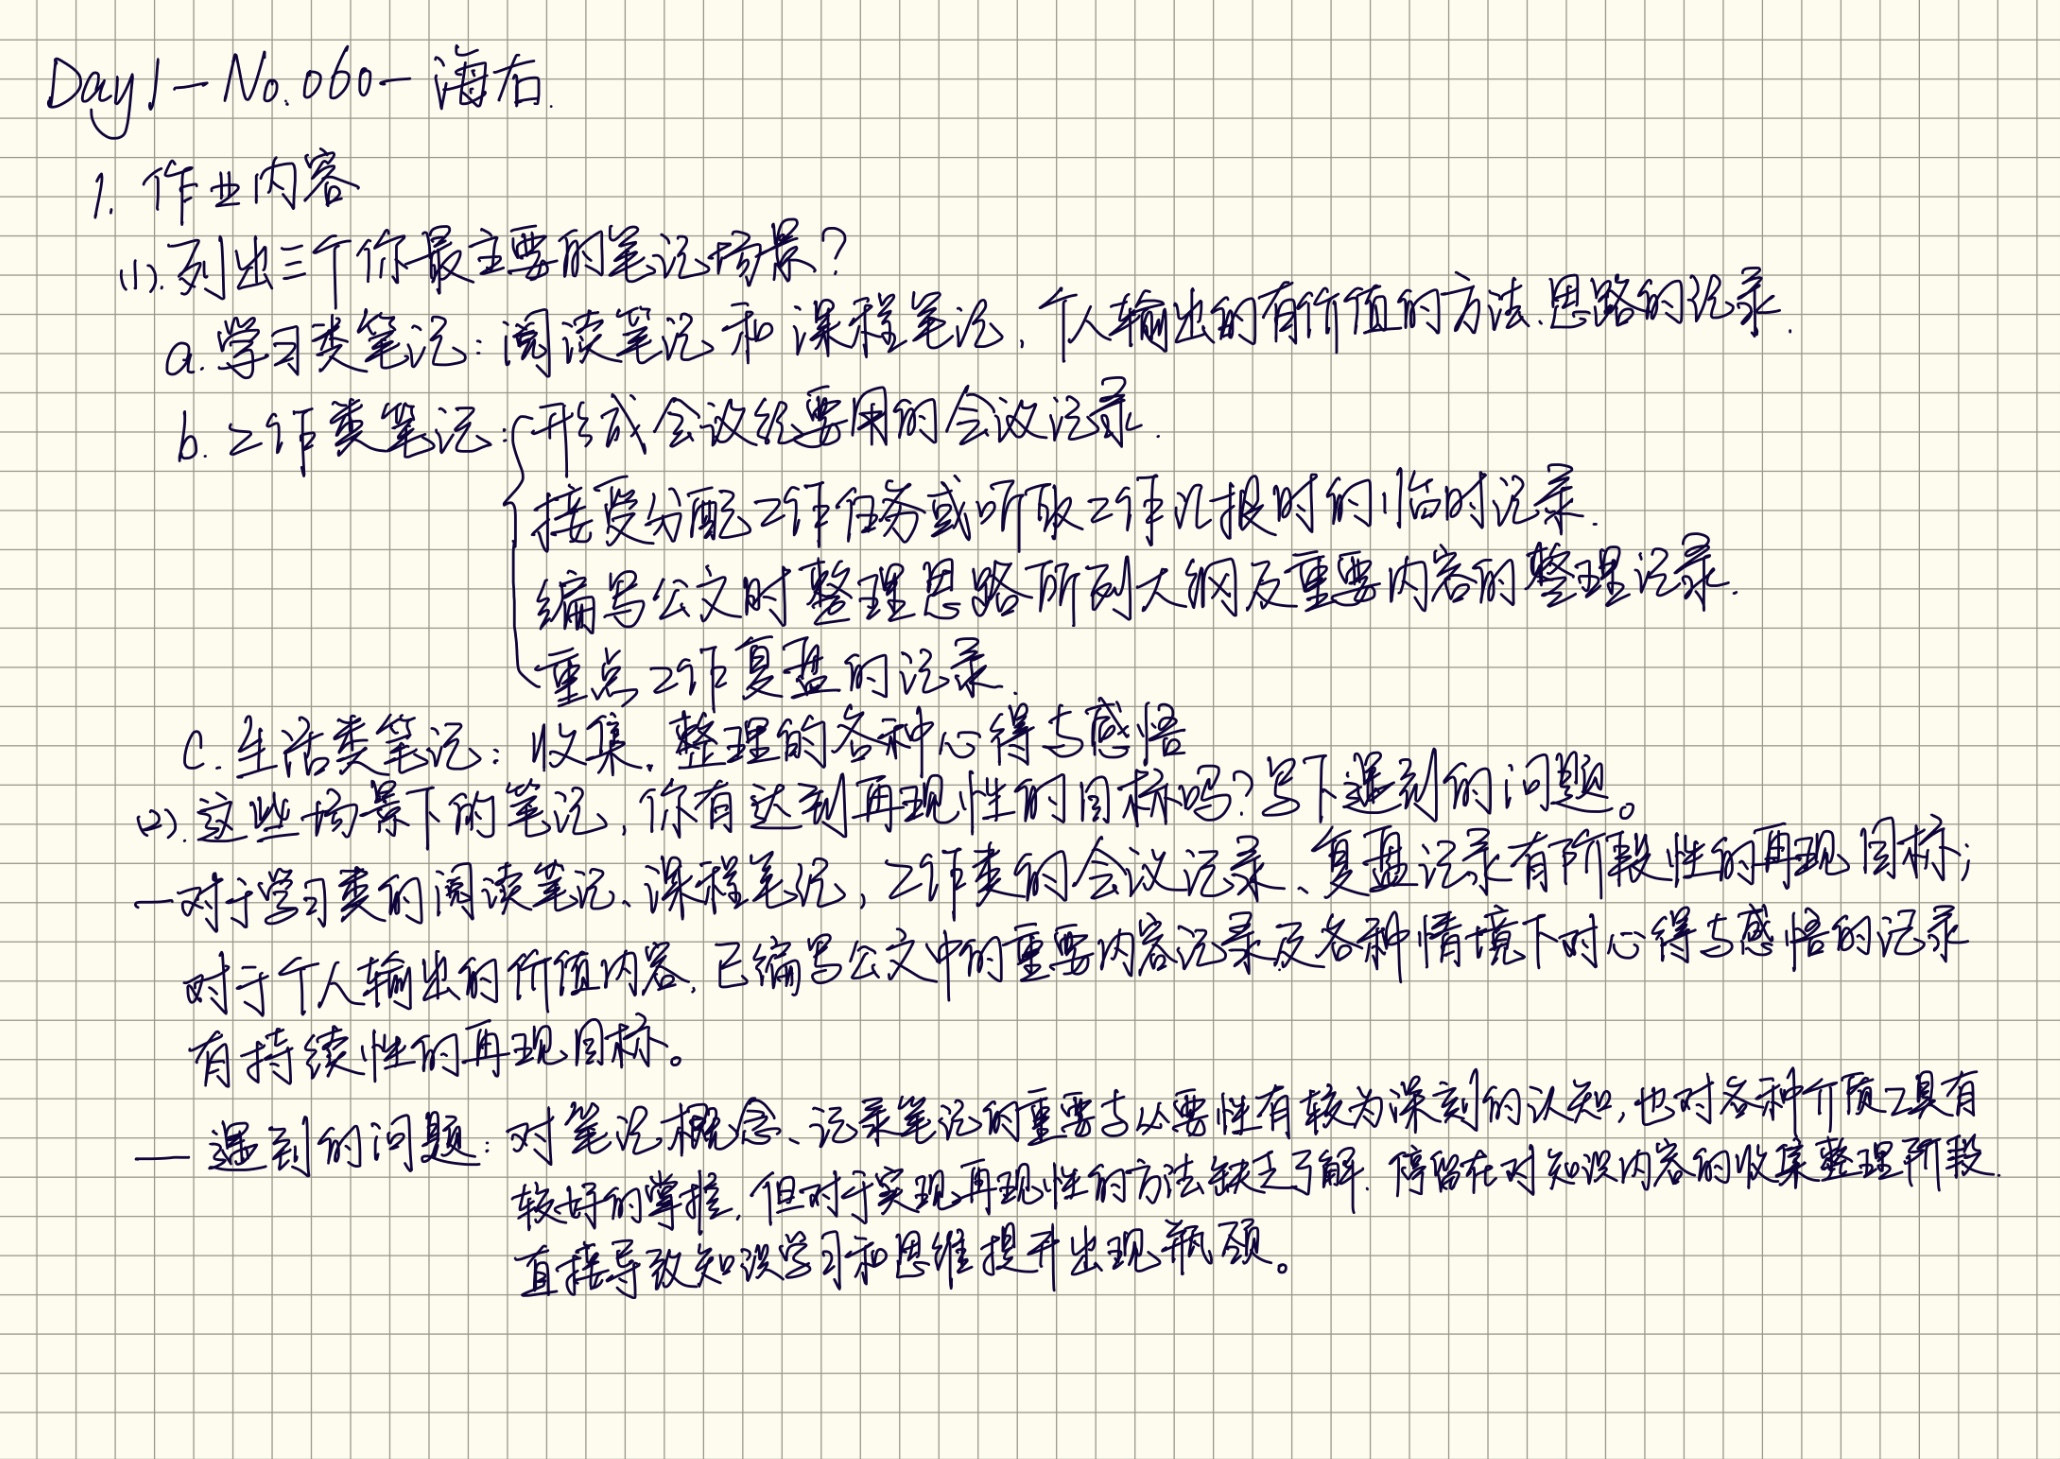 Day1-No.060-海右.
1. 作业内容
(1). 列出三个你最主要的笔记场景?
a. 学习类笔记: 阅读笔记和课程笔记, 个人输出的有价值的方法、思路的记录.
b. 工作类笔记: 形成会议纪要用的会议记录.
接受分配工作任务或听取工作汇报时的临时记录.
编写公文时整理思路所列大纲及重要内容的整理记录.
重点工作复盘的记录.
C. 生活类笔记: 收集、整理的各种心得与感悟
(2). 这些场景下的笔记, 你有达到再现性的目标吗? 写下遇到的问题。
一对于学习类的阅读笔记、课程笔记, 工作类的会议记录、复盘记录有阶段性的再现目标;
对于个人输出的价值内容, 已编写公文中的重要内容记录及各种情境下对心得与感悟的记录
有持续性的再现目标。
— 遇到的问题: 对笔记概念、记录笔记的重要与必要性有较为深刻的认知, 也对各种介质工具有
较好的掌握, 但对于实现再现性的方法缺乏了解. 停留在对知识内容的收集整理阶段.
直接导致知识学习和思维提升出现瓶颈。